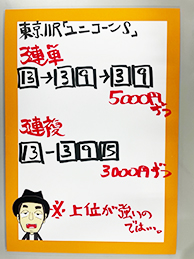 東京11R「ユニコーンS」
3連単
13→3 9→3 9
5000円ずつ
3連複
13-3 9 15
3000円ずつ
※上位が強いの
では…。